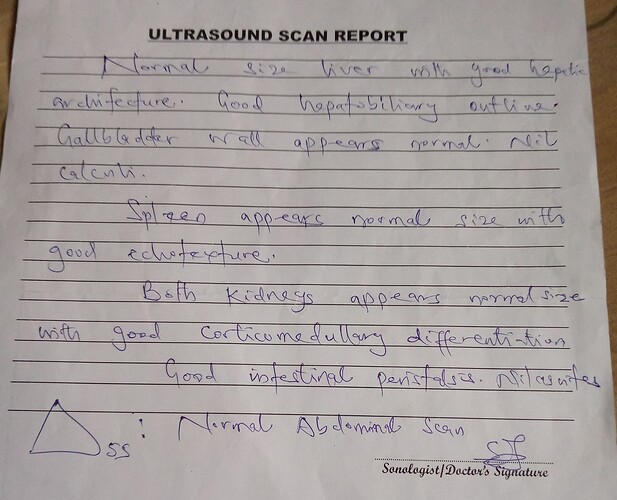 ULTRASOUND SCAN REPORT
Normal size liver with good hepatic
architecture. Good hepatobiliary outline.
Gallbladder wall appears normal. Nil
calculi.
Spleen appears normal size with
good echotexture.
Both kidneys appears normal size
with good corticomedullary differentiation
Good intestinal peristalsis. Nil ascites
△SS : Normal Abdominal Scan
Sonologist/Doctor's Signature